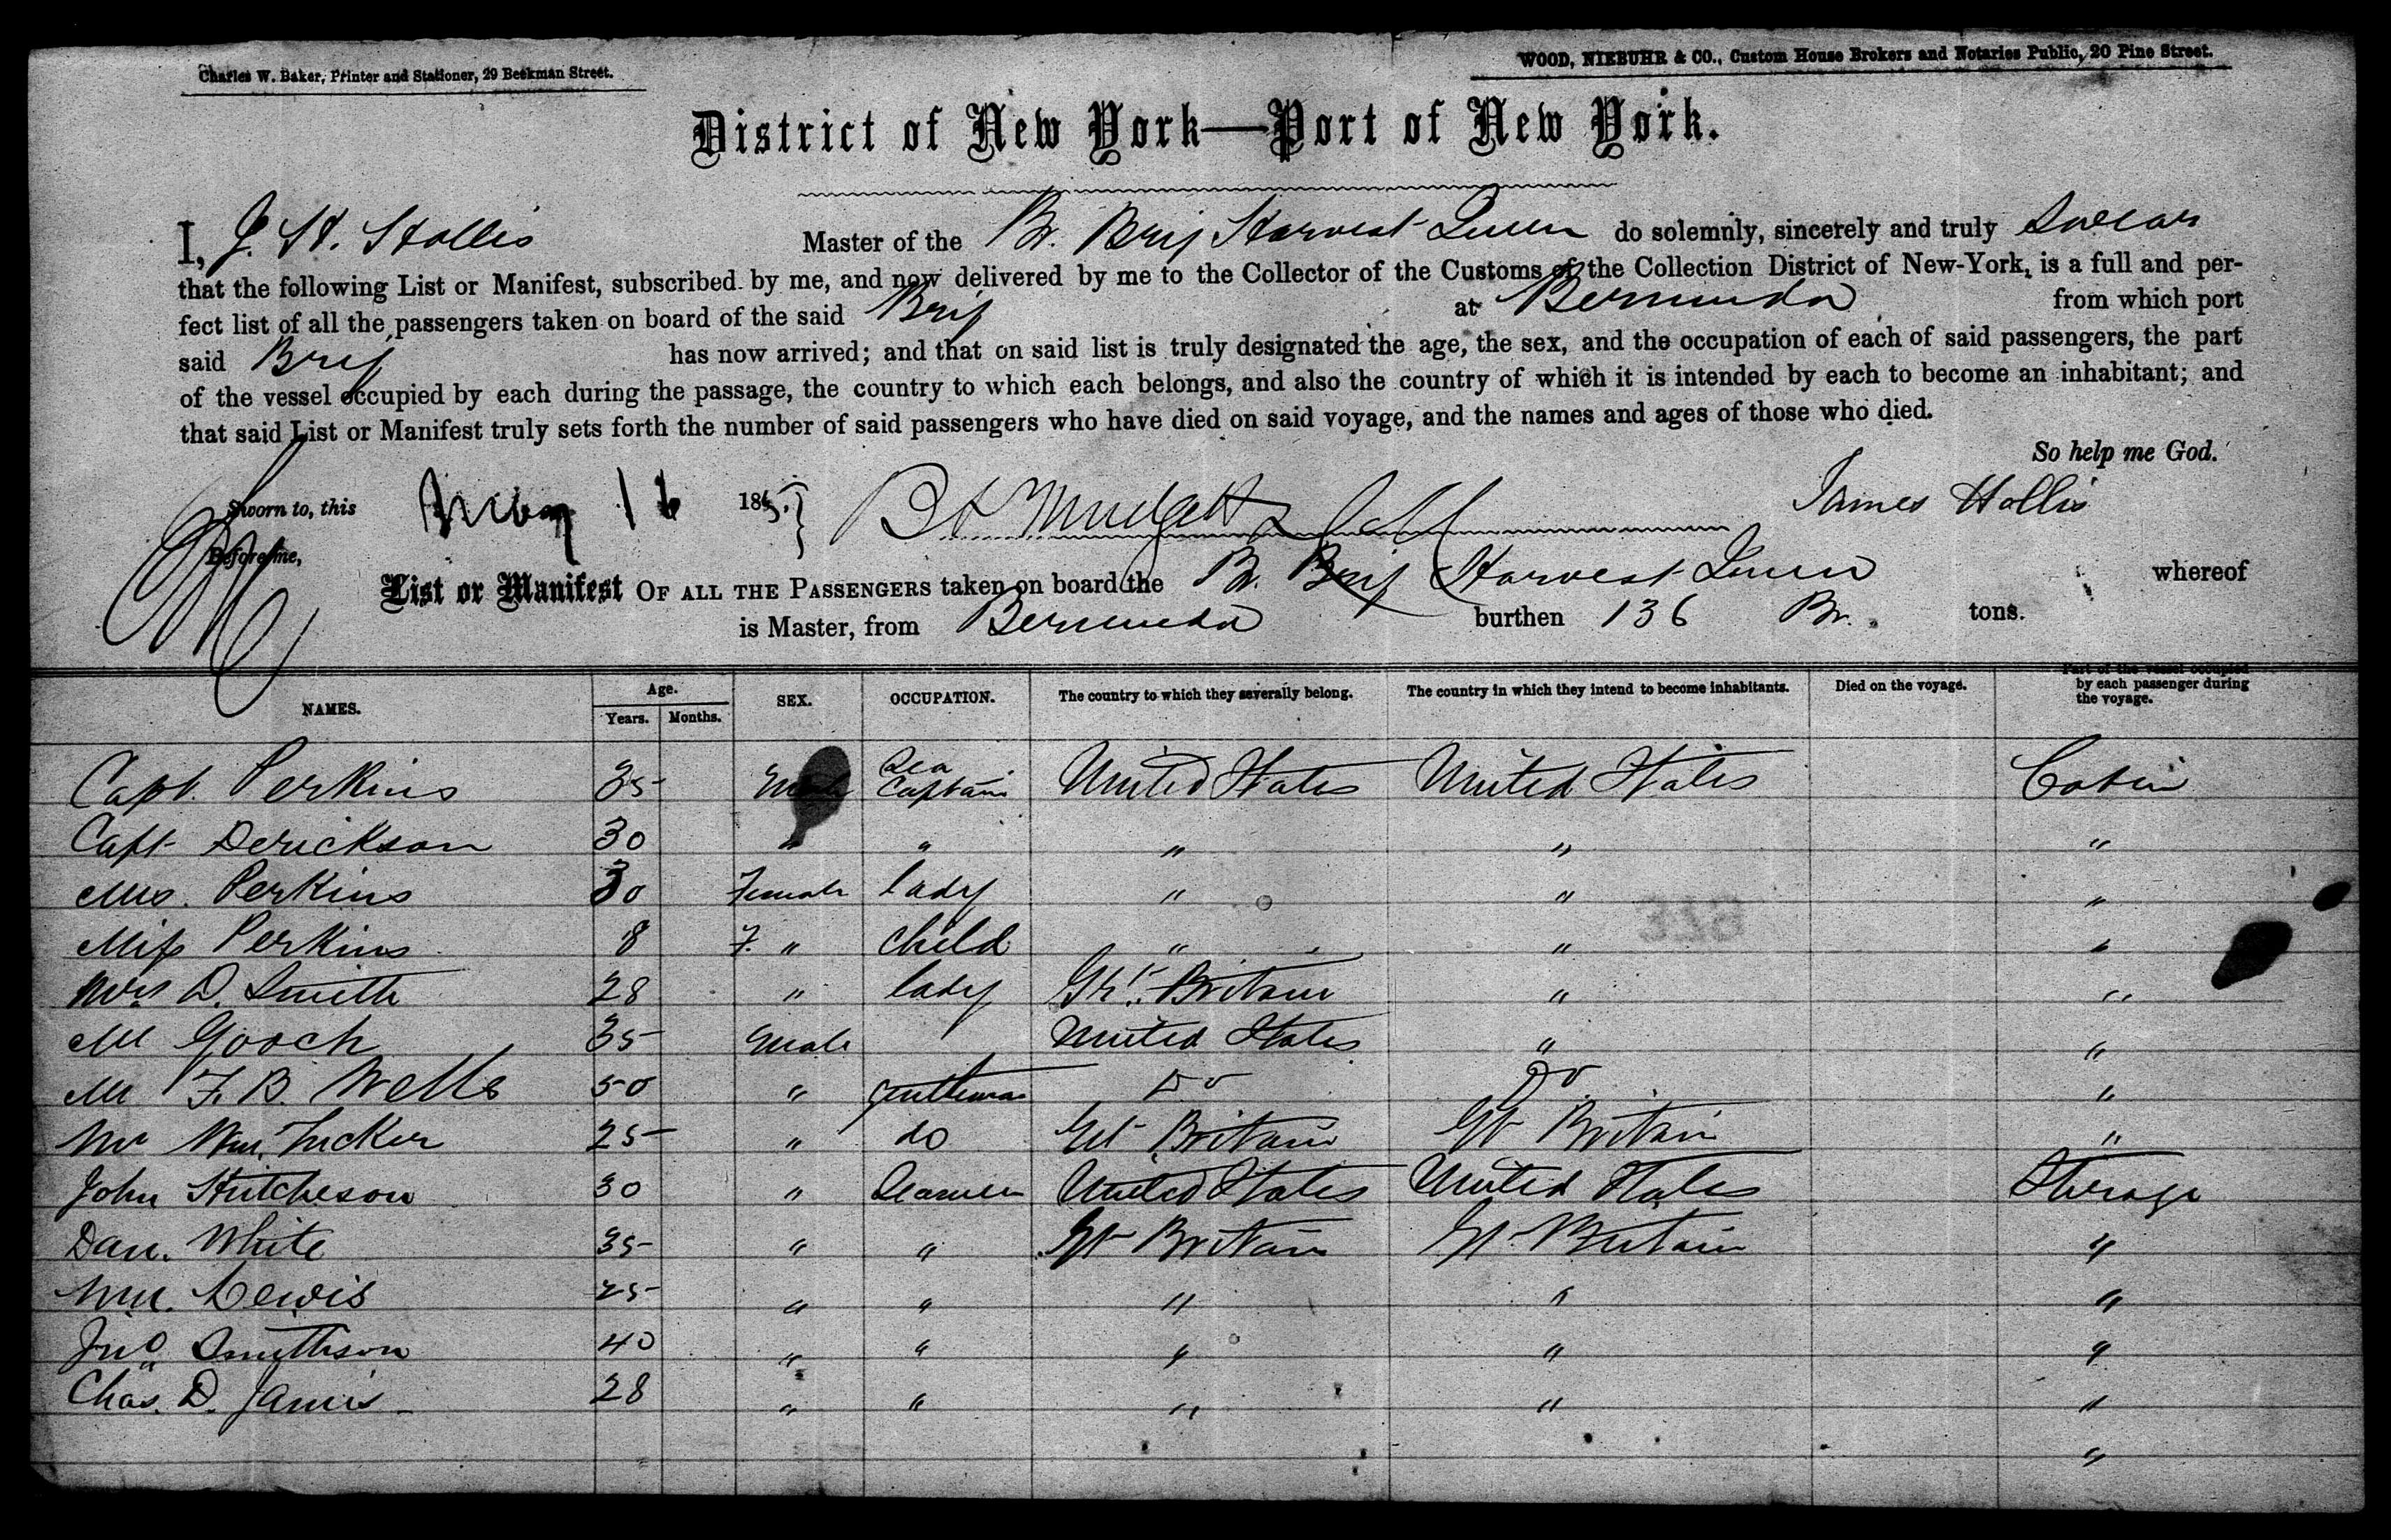 Charles W. Baker, Printer and Stationer, 29 Beekman Street.
WOOD, NIEBUHR & CO., Custom House Brokers and Notaries Public, 20 Pine Street.
District of New York—Port of New York.
I, J. H. Hollis Master of the Br. Brig Harvest Queen do solemnly, sincerely and truly Swear
that the following List or Manifest, subscribed by me, and now delivered by me to the Collector of the Customs of the Collection District of New-York, is a full and per-
fect list of all the passengers taken on board of the said Brig at Bermuda from which port
said Brig has now arrived; and that on said list is truly designated the age, the sex, and the occupation of each of said passengers, the part
of the vessel occupied by each during the passage, the country to which each belongs, and also the country of which it is intended by each to become an inhabitant; and
that said List or Manifest truly sets forth the number of said passengers who have died on said voyage, and the names and ages of those who died.
So help me God.
Sworn to, this May 16 1865. James Hollis
Before me,
List or Manifest OF ALL THE PASSENGERS taken on board the Br. Brig Harvest Queen whereof
is Master, from Bermuda burthen 136 Br. tons.
NAMES. Age. Years. Months. SEX. OCCUPATION. The country to which they severally belong. The country in which they intend to become inhabitants. Died on the voyage. Part of the vessel occupied by each passenger during the voyage.
Capt. Perkins 35 Male Sea Captain United States United States Cabin
Capt Derickson 30 " " " " "
Mrs. Perkins 30 Female lady " " "
Miss Perkins 8 F. " child " " "
Mrs D. Smith 28 " lady Gt. Britain " "
Mr Gooch 35 Male United States " "
Mr F. B. Wells 50 " gentleman Do Do "
Mr Wm. Tucker 25 " do Gt Britain Gt Britain "
John Hutcheson 30 " Seamen United States United States Steerage
Dan. White 35 " " Gt Britain Gt Britain "
Wm. Lewis 25 " " " " "
Jno Smithson 40 " " " " "
Chas. D. Jamis 28 " " " " "
"